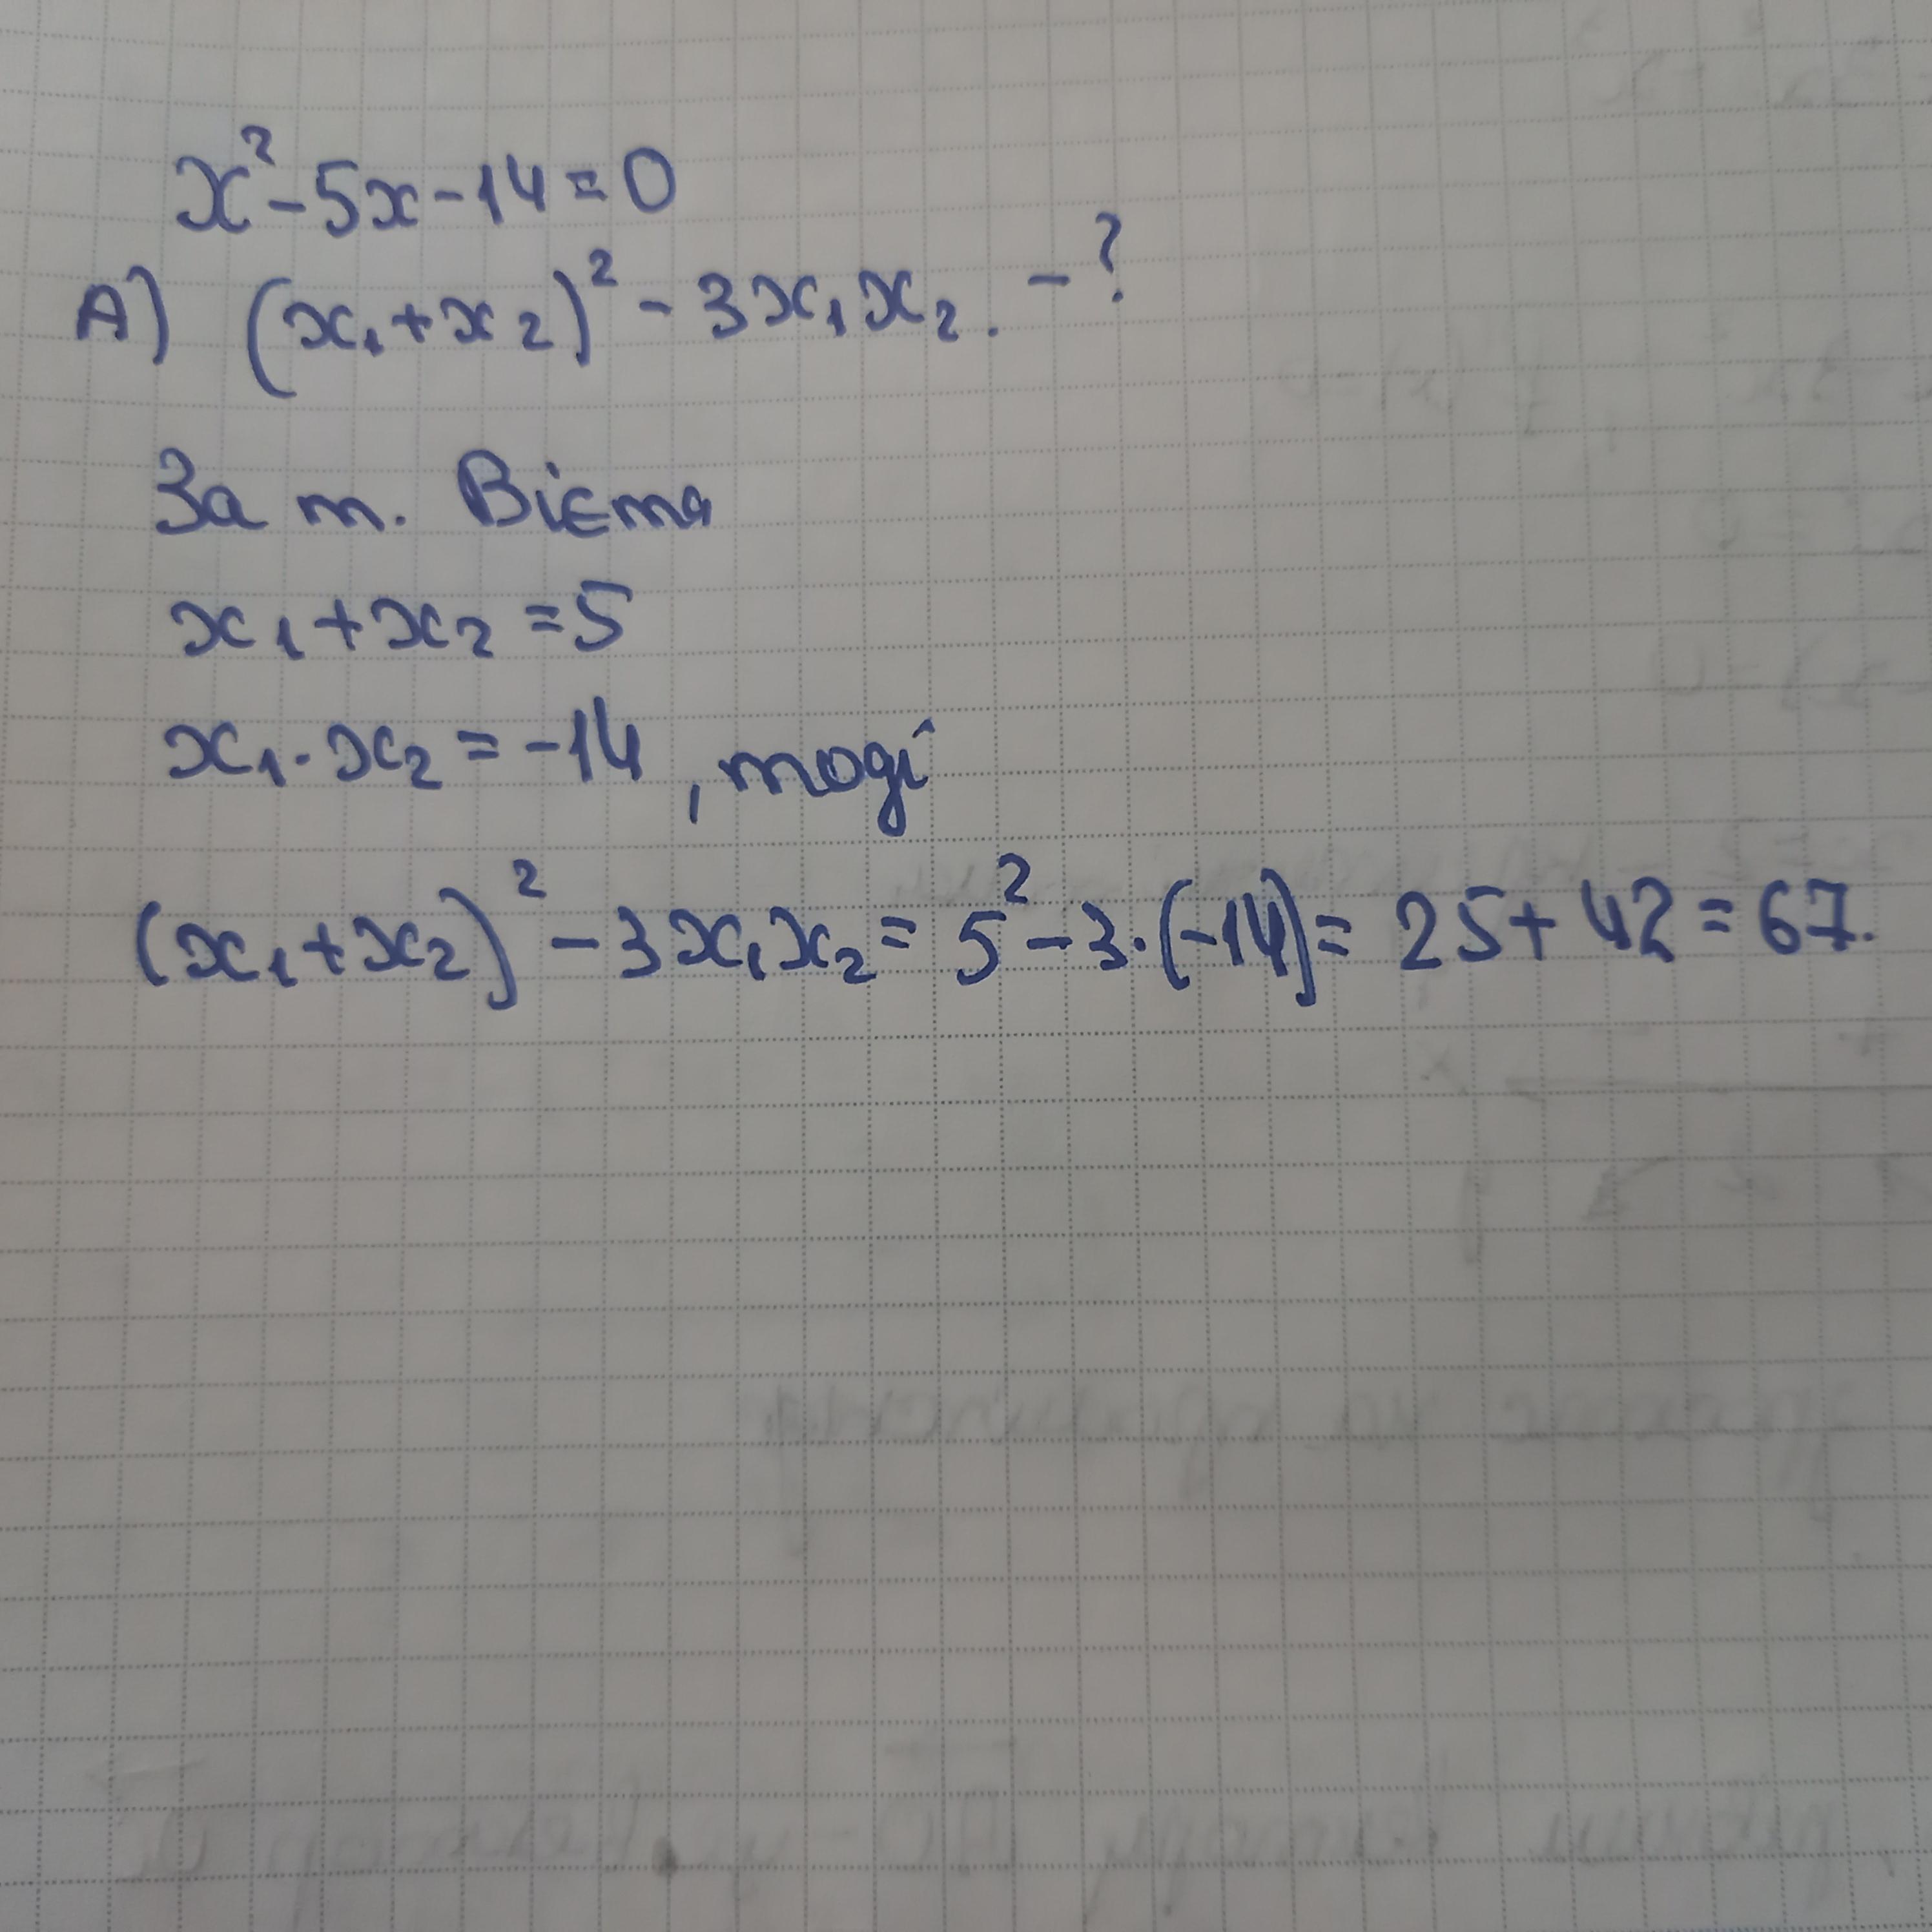 x² - 5x - 14 = 0
А) (x₁ + x₂)² - 3x₁x₂. - ?
За т. Вієта
x₁ + x₂ = 5
x₁ · x₂ = -14, тоді
(x₁ + x₂)² - 3x₁x₂ = 5² - 3 · (-14) = 25 + 42 = 67.